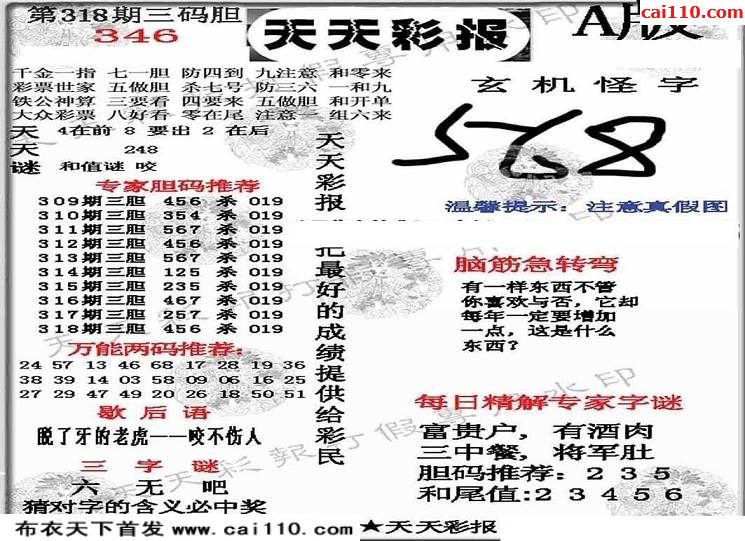 第318期三码胆
346
天天彩报
A版
cai110.com
千金一指 七一胆 防四到 九注意 和零来
彩票世家 五做胆 杀七号 防三六 一和九
铁公神算 三要看 四要来 五做胆 和开单
大众彩票 八好看 零在尾 注意一 组六来
天 4在前 8要出 2在后
天 248
谜 和值谜 咬
专家胆码推荐
309期三胆 456 杀 019
310期三胆 354 杀 019
311期三胆 567 杀 019
312期三胆 456 杀 019
313期三胆 567 杀 019
314期三胆 125 杀 019
315期三胆 235 杀 019
316期三胆 467 杀 019
317期三胆 257 杀 019
318期三胆 456 杀 019
万能两码推荐:
24 57 13 46 68 17 28 19 36
38 39 14 03 58 09 06 16 25
27 29 47 49 20 26 18 50 51
歇后语
脱了牙的老虎——咬不伤人
三字谜
六 无 吧
猜对字的含义必中奖
天天彩报
把最好的成绩提供给彩民
玄机怪字
578
温馨提示: 注意真假图
脑筋急转弯
有一样东西不管
你喜欢与否，它却
每年一定要增加
一点，这是什么
东西？
每日精解专家字谜
富贵户，有酒肉
三中餐，将军肚
胆码推荐: 2 3 5
和尾值:2 3 4 5 6
布衣天下首发 www.cai110.com
★天天彩报